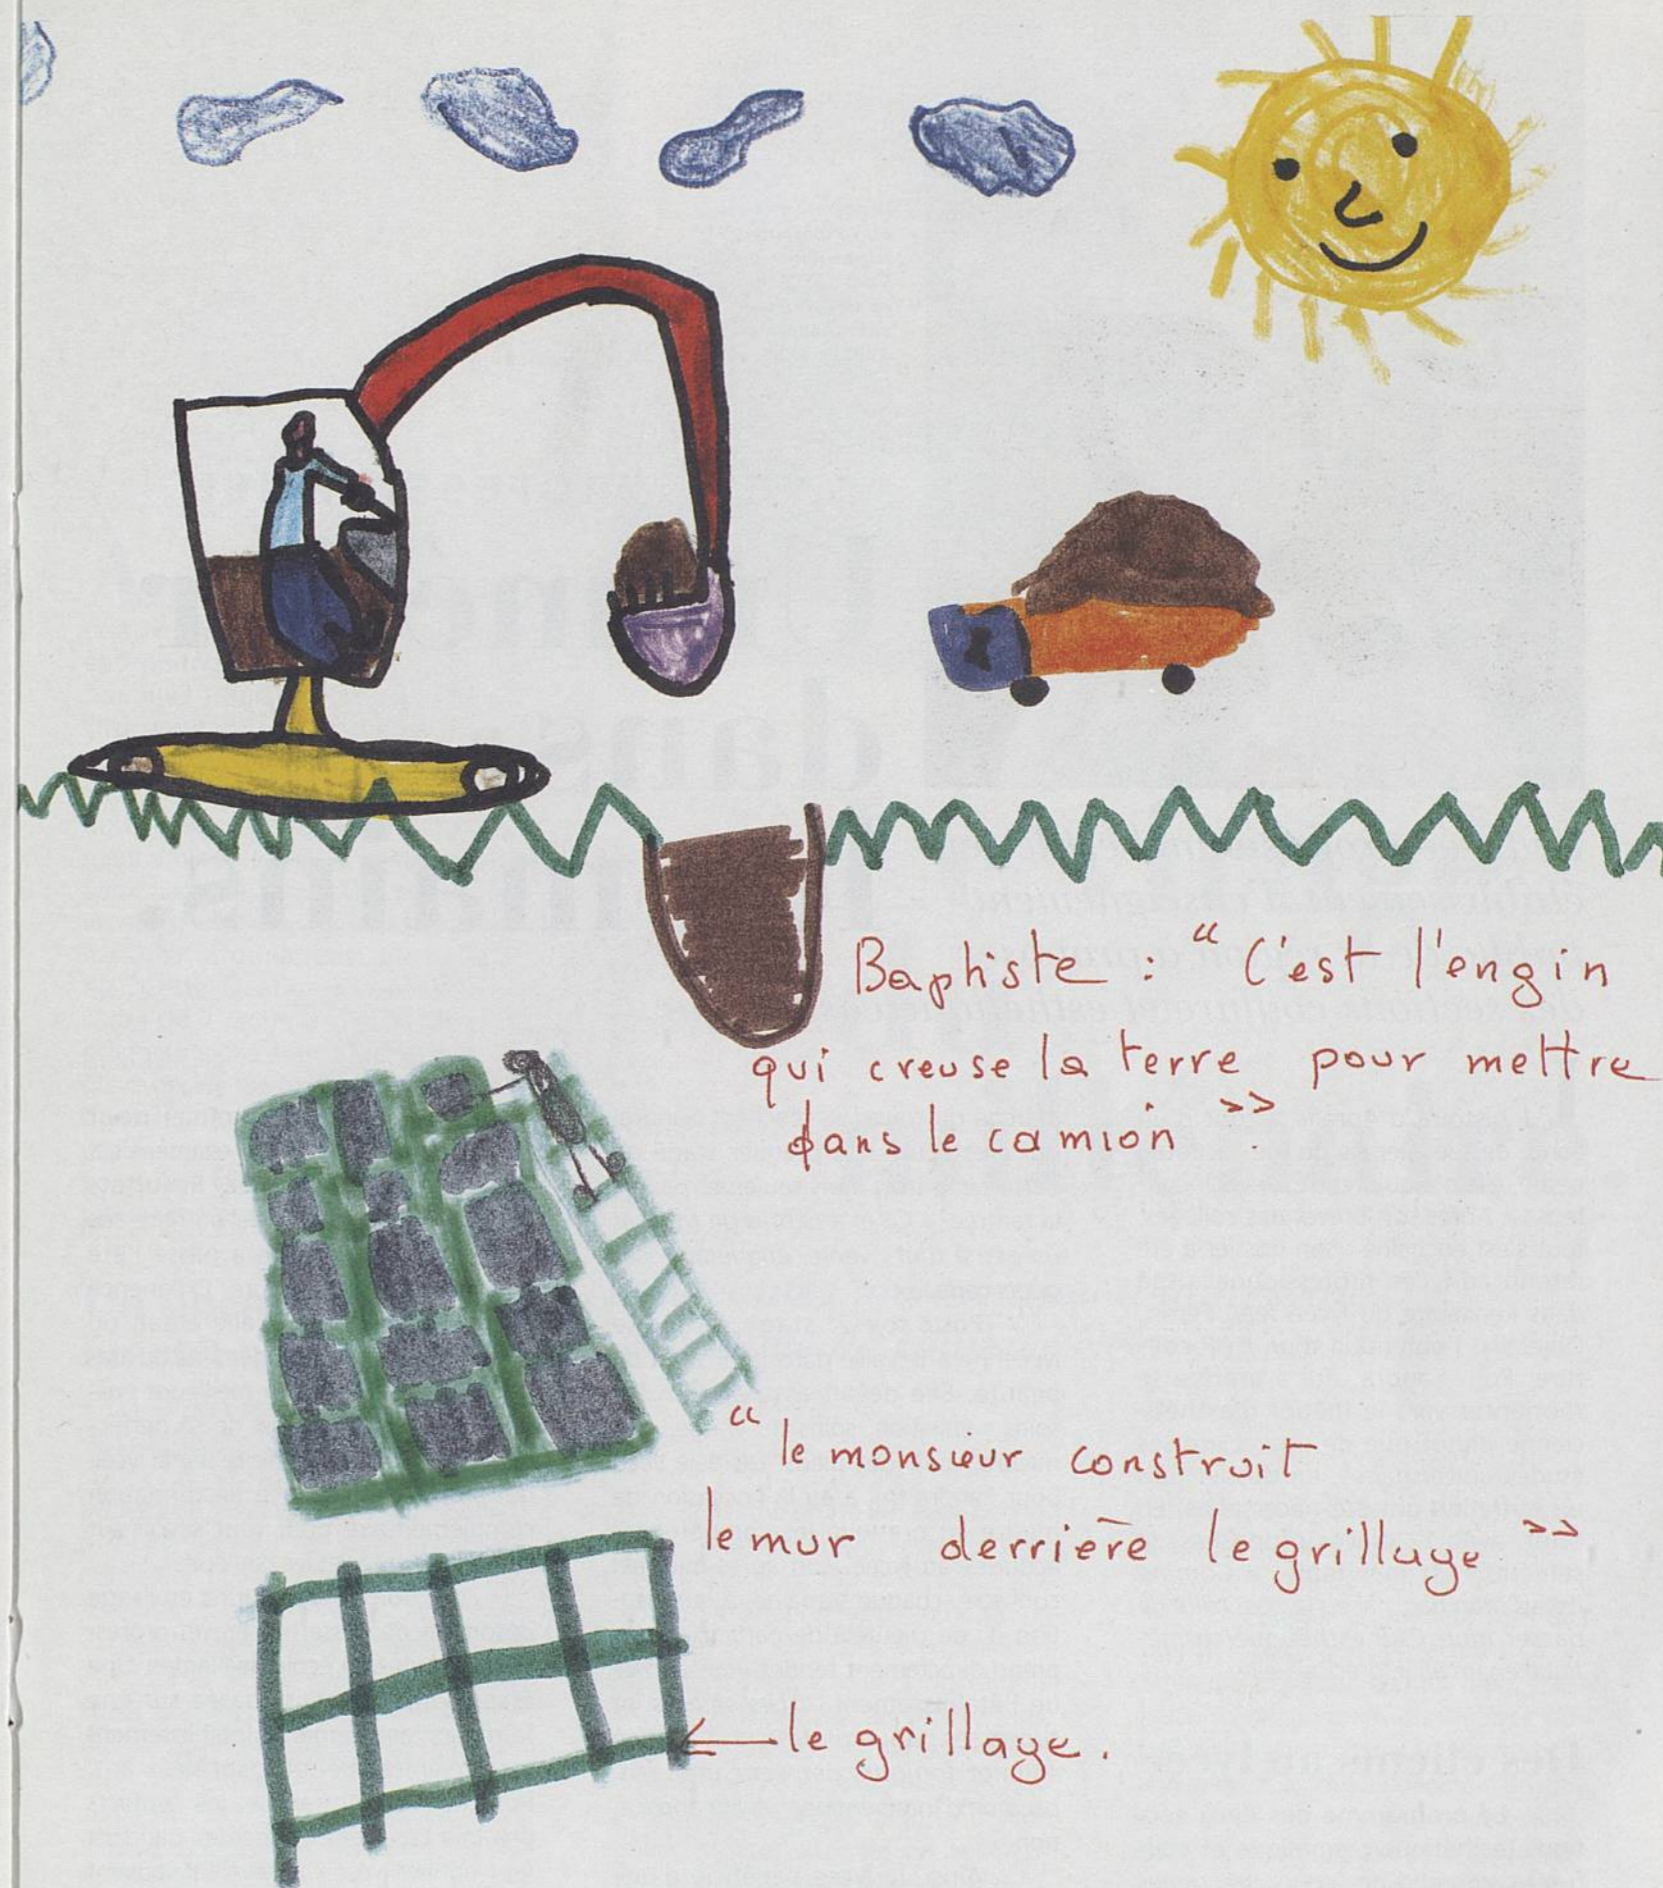 Baptiste : "C'est l'engin
qui creuse la terre pour mettre
dans le camion".
"le monsieur construit
le mur derrière le grillage"
le grillage.